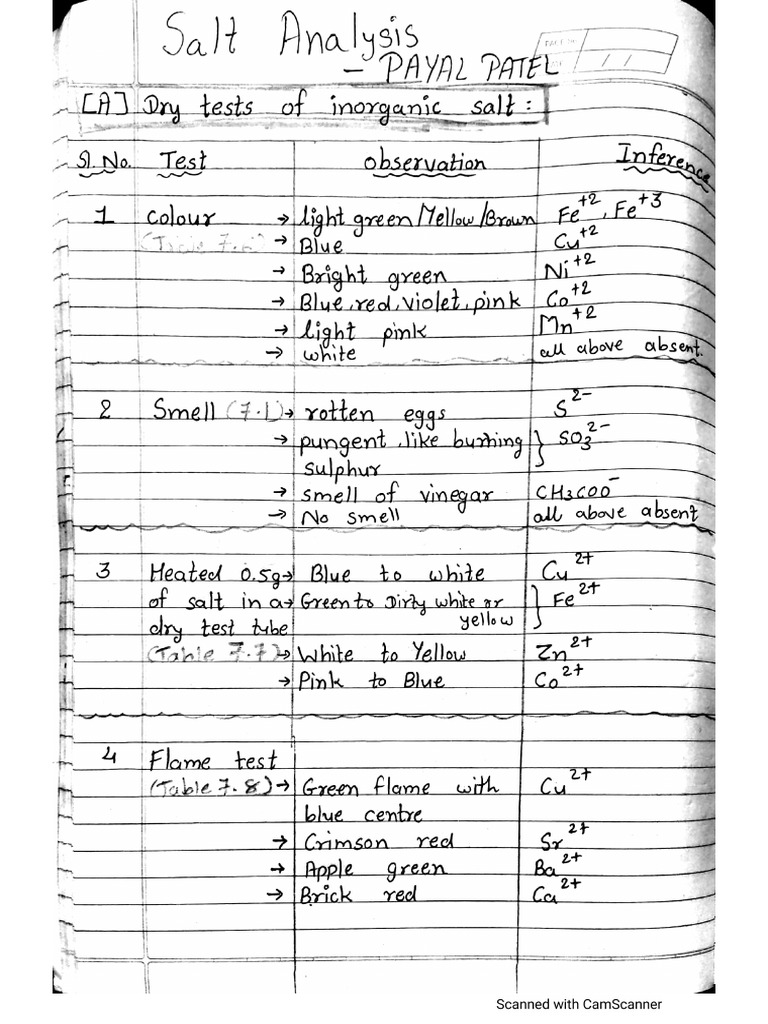 Salt Analysis
- PAYAL PATEL
[A] Dry tests of inorganic salt:
Sl. No. Test Observation Inference
1 Colour → light green/Yellow/Brown Fe+2, Fe+3
→ Blue Cu+2
→ Bright green Ni+2
→ Blue, red, violet, pink Co+2
→ light pink Mn+2
→ white all above absent.
2 Smell (7.1) → rotten eggs S2-
→ pungent, like burning } SO32-
sulphur
→ smell of vinegar CH3COO-
→ No smell all above absent
3 Heated 0.5g → Blue to white Cu2+
of salt in a → Green to Dirty white or } Fe2+
dry test tube yellow
(Table 7.7) → White to Yellow Zn2+
→ Pink to Blue Co2+
4 Flame test
(Table 7.8) → Green flame with Cu2+
blue centre
→ Crimson red Sr2+
→ Apple green Ba2+
→ Brick red Ca2+
Scanned with CamScanner